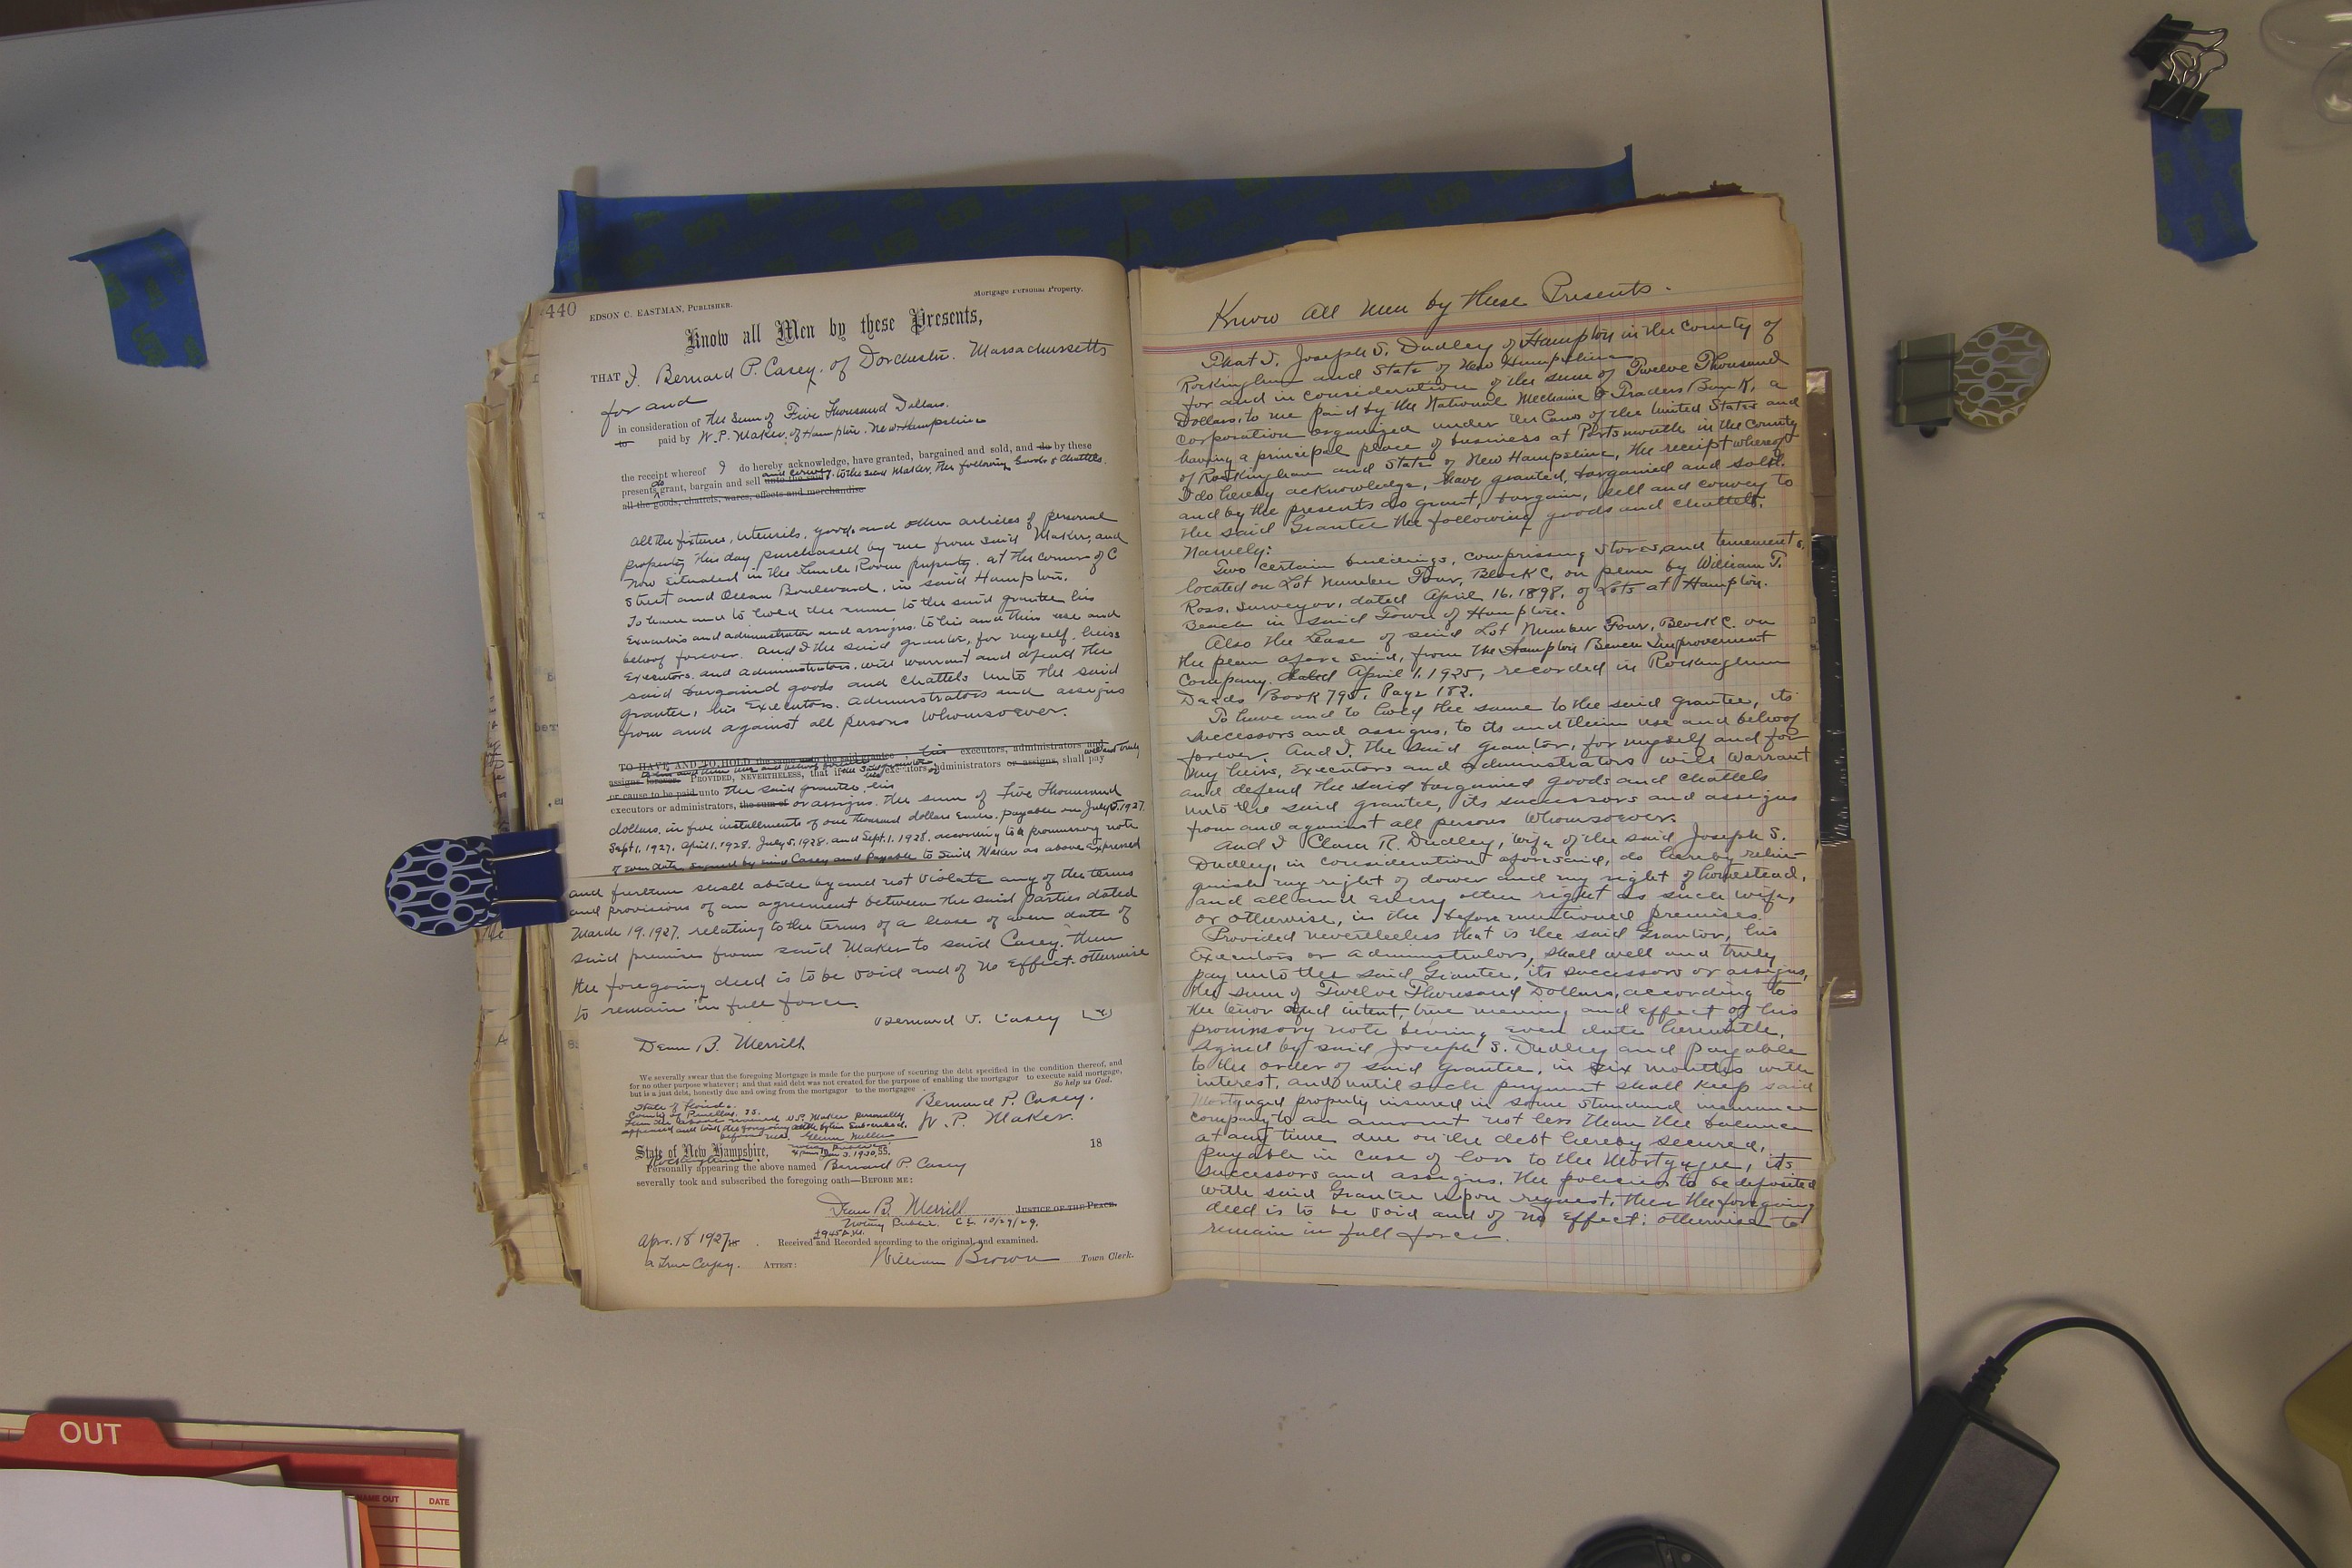 440
EDSON C. EASTMAN, PUBLISHER.
Mortgage Personal Property.
Know all Men by these Presents,
THAT I. Bernard P. Casey. of Dorchester. Massachusetts
for and
in consideration of the sum of Five Thousand Dollars.
to paid by W.P. Maker, of Hampton. New Hampshire
the receipt whereof I do hereby acknowledge, have granted, bargained and sold, and do by these
presents do grant, bargain and sell unto the said and convey to the said Maker, the following Goods & Chattels.
all the goods, chattels, wares, effects and merchandise
All the fixtures, utensils, goods, and other articles of personal
property this day purchased by me from said Maker, and
now situated in the Lunch Room property. at the corner of C
Street and Ocean Boulevard, in said Hampton.
To have and to hold the same to the said grantee his
Executors and administrator and assigns. to his and their use and
behoof forever. And I the said grantor, for myself. heirs
Executors. and administrators. will warrant and defend the
said bargained goods and chattels unto the said
grantee, his Executors. administrators and assigns
from and against all persons Whomsoever.
TO HAVE AND TO HOLD the same unto the said grantee his executors, administrators and
assigns forever. PROVIDED, NEVERTHELESS, that if the said grantor his executors or administrators or assigns, shall well and truly pay
or cause to be paid unto the said grantee, his
executors or administrators, the sum of or assigns. the sum of Five Thousand
dollars. in five installments of one thousand dollars Each. payable on July 5. 1927.
Sept 1. 1927. April 1. 1928. July 5. 1928. and Sept. 1. 1928. according to a promissory note
of even date signed by said Casey and Payable to said Maker as above Expressed
and further shall abide by and not violate any of the terms
and provisions of an agreement between the said parties dated
March 19. 1927. relating to the terms of a lease of even date of
said premises from said Maker to said Casey. then
the foregoing deed is to be void and of no Effect. otherwise
to remain in full force.
Bernard P. Casey
Dean B. Merrill
We severally swear that the foregoing Mortgage is made for the purpose of securing the debt specified in the condition thereof, and
for no other purpose whatever; and that said debt was not created for the purpose of enabling the mortgagor to execute said mortgage,
but is a just debt, honestly due and owing from the mortgagor to the mortgagee . So help us God.
Bernard P. Casey.
W. P. Maker.
State of Florida.
County of Pinellas. ss.
Then the above named W.P. Maker personally
appeared and took the foregoing oath by him Subscribed.
before me. Glenn Miller
Notary Public
18
State of New Hampshire,
Rockingham. SS.
Personally appearing the above named Bernard P. Casey
severally took and subscribed the foregoing oath—BEFORE ME:
Dean B. Merrill JUSTICE OF THE PEACE.
Notary Public. 10/29/29.
Apr. 18 1927 Received and Recorded according to the original, and examined.
a True Copy. ATTEST: William Brown Town Clerk.
Know All Men by these Presents.
That I. Joseph S. Dudley of Hampton in the County of
Rockingham and State of New Hampshire
for and in consideration of the sum of Twelve Thousand
Dollars, to me paid by the National Mechanic & Traders Bank, a
Corporation organized under the Laws of the United States and
having a principal place of business at Portsmouth in the County
of Rockingham and State of New Hampshire, the receipt whereof
I do hereby acknowledge, have granted, bargained and sold.
and by the presents do grant, bargain, sell and convey to
the said Grantee the following goods and chattels.
Namely:
Two certain buildings, comprising stores, and tenements,
located on Lot Number Four, Block C, on plan by William T.
Ross, surveyor, dated April 16. 1898, of Lots at Hampton.
Beach in said Town of Hampton.
Also the Lease of said Lot Number Four, Block C. on
the plan aforesaid, from the Hampton Beach Improvement
Company. dated April 1. 1925, recorded in Rockingham
Deeds Book 795, Page 182.
To have and to hold the same to the said grantee, its
successors and assigns, to its and their use and behoof
forever. And I, the said grantor, for myself and for
my heirs, Executors and administrators will Warrant
and defend the said bargained goods and chattels
unto the said grantee, its successors and assigns
from and against all persons Whomsoever.
And I Clara R. Dudley, wife of the said Joseph S.
Dudley, in consideration aforesaid, do hereby relin-
quish my right of dower and my right of homestead,
and all and every other right as such wife,
or otherwise, in the before mentioned premises.
Provided nevertheless that is the said Grantor, his
Executors or administrators, shall well and truly
pay unto the said Grantee, its successors or assigns,
the sum of Twelve Thousand Dollars, according to
the tenor and intent, true meaning and effect of his
promissory note bearing even date herewith,
signed by said Joseph S. Dudley and payable
to the order of said Grantee, in six months with
interest, and until such payment shall keep said
Mortgaged property insured in some Standard insurance
company to an amount not less than the balance
at any time due on the debt hereby secured,
payable in case of loss to the Mortgagee, its
successors and assigns, the policies to be deposited
with said Grantee upon request, then the foregoing
deed is to be void and of no Effect; otherwise to
remain in full force.
OUT
NAME OUT
DATE